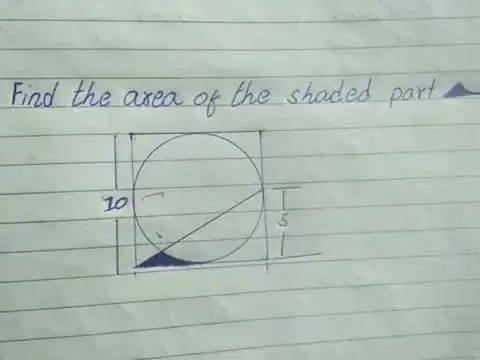 Find the area of the shaded part
10
5